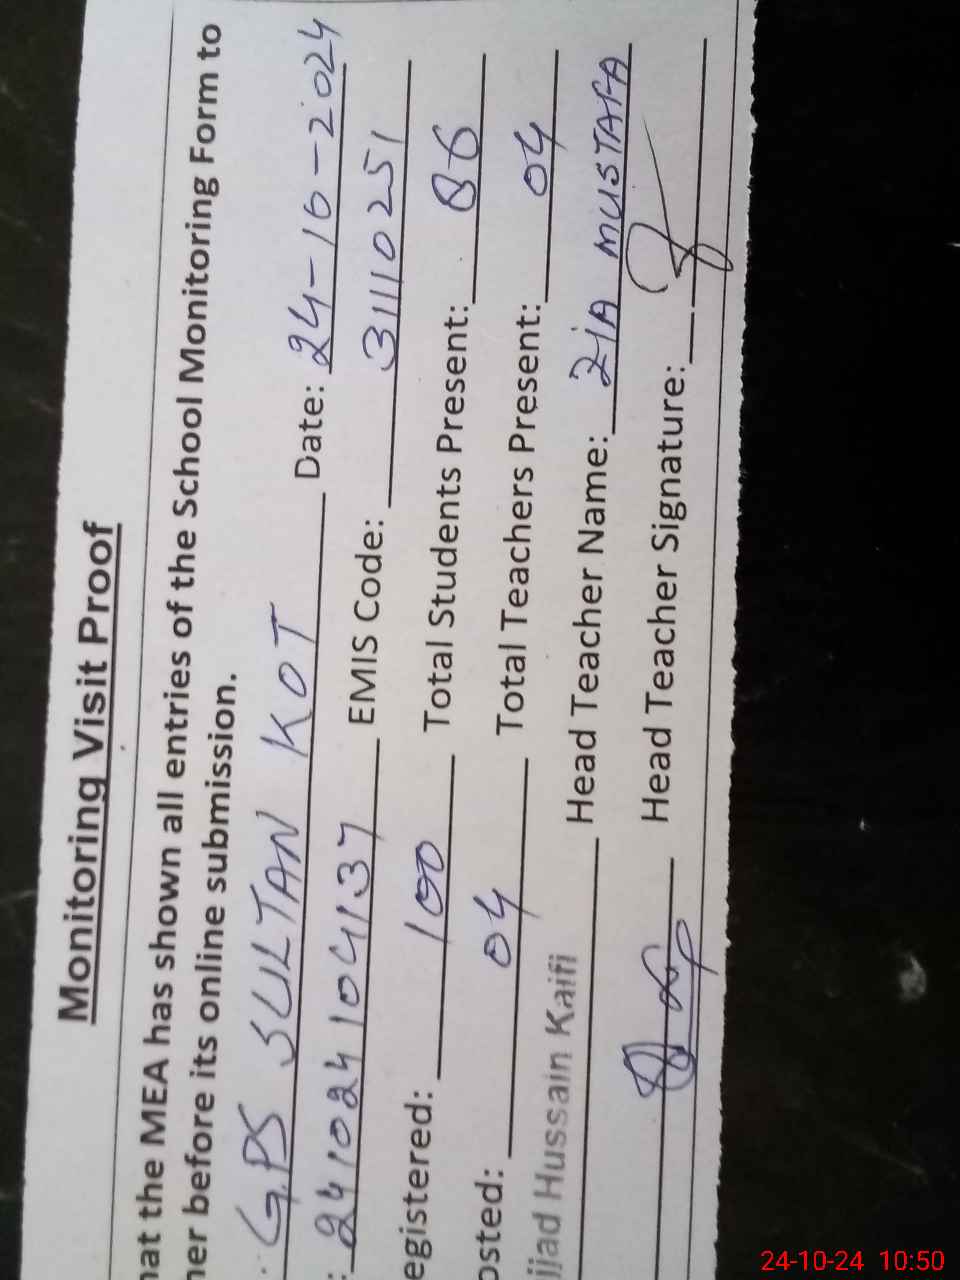 Monitoring Visit Proof
hat the MEA has shown all entries of the School Monitoring Form to
her before its online submission.
GPS SULTAN KOT Date: 24-10-2024
: 241024104137 EMIS Code: 31110251
egistered: 100 Total Students Present: 86
osted: 04 Total Teachers Present: 04
jjad Hussain Kaifi Head Teacher Name: ZIA MUSTAFA
Head Teacher Signature:
24-10-24 10:50